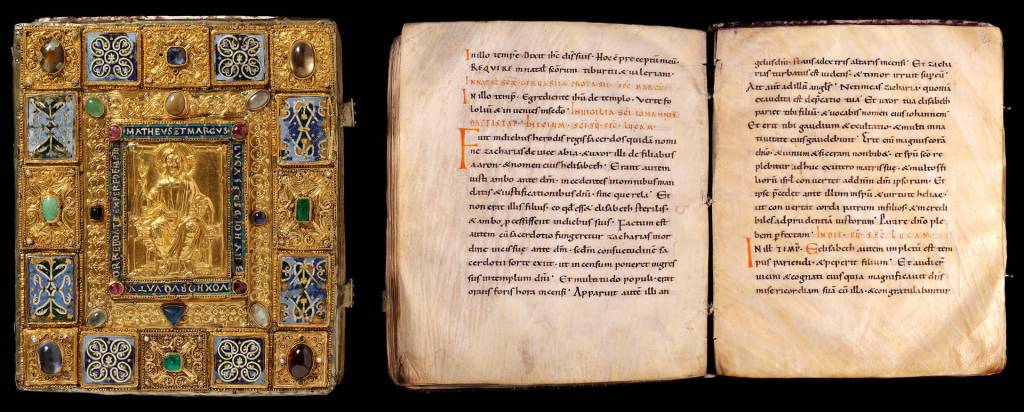 MATHEVSETMARCVS
In illo tempr̄e · Dixit ih̄c discip̄ suis · Hoc ē preceptū meū
REQVIRE in natał sc̄orum tiburtii &ualeriani ·
In illo temp̄r · Egrediente ih̄u de templo ·
IN VIGILIA SC̄I IOHANNIS
BAPTISTAE ·
SEC̄ LVCAM ·
Fuit indiebus herodis regis sacerdos quidā nomi
ne zacharias de uice abia · &uxor illi de filiabus
aaron · &nomen eius helisabeth · Erant autem
iusti ambo ante dm̄ · incedentes inomnibus man
datis &iustificationibus dn̄i · sine querela · Et
non erat illis filius · eo qđ ess& elisabeth sterilis ·
&ambo p̄cessissent indiebus suis · Factum est
autem cū sacerdotio fungeretur zacharias inor
dine uicis suę ante dm̄ · scđm consuetudinē sa
cerdotii sorte exiit · ut incensum poner& ingres
sus intemplum dn̄i · Et multitudo populi · erat
orans foris hora incensi · Apparuit autē illi an
gelus dn̄i · stans adextris altaris incensi · Et zacha
rias turbatus est uidens · &timor irruit sup eū ·
Ait autē adillū angl̄s · Netimeas zacharia · quoniā
exaudita est depcatio tua · Et uxor tua elisabeth
pariet tibi filiū · &uocabis nomen eius iohannem ·
Et erit tibi gaudium &exultatio · &multi inna
tiuitate eiusgaudebunt · Erit eni magnus corā
dn̄o · &uinum &siceram nonbib& · et spū sc̄o re
plebitur adhuc exutero matris suę · &multos fi
liorū isrl̄ conuertet addn̄m dm̄ ipsorum · Et
ipse p̄cedet ante illum inspū &uirtute heliae ·
ut conuertat corda patrum infilios · &incredi
biles adprudentiā iustorum · Parare dn̄o ple
bem pfectam ·
SEC̄ LVCAM
IN ILL̄ TIMP̄R · Elisabeth autem impletū est tem
pus pariendi · &peperit filium · Et audier̄
uicini &cognati eius quia magnificauit dn̄s
misericordiam suā cū illa · &congratulabantur